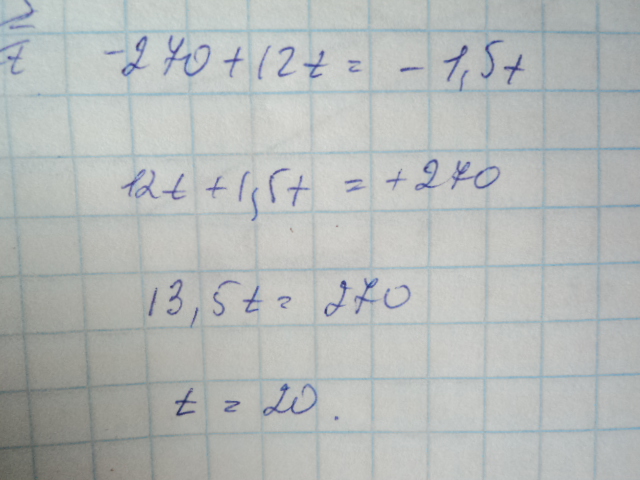 -270 + 12t = - 1,5t
12t + 1,5t = +270
13,5t = 270
t = 20.